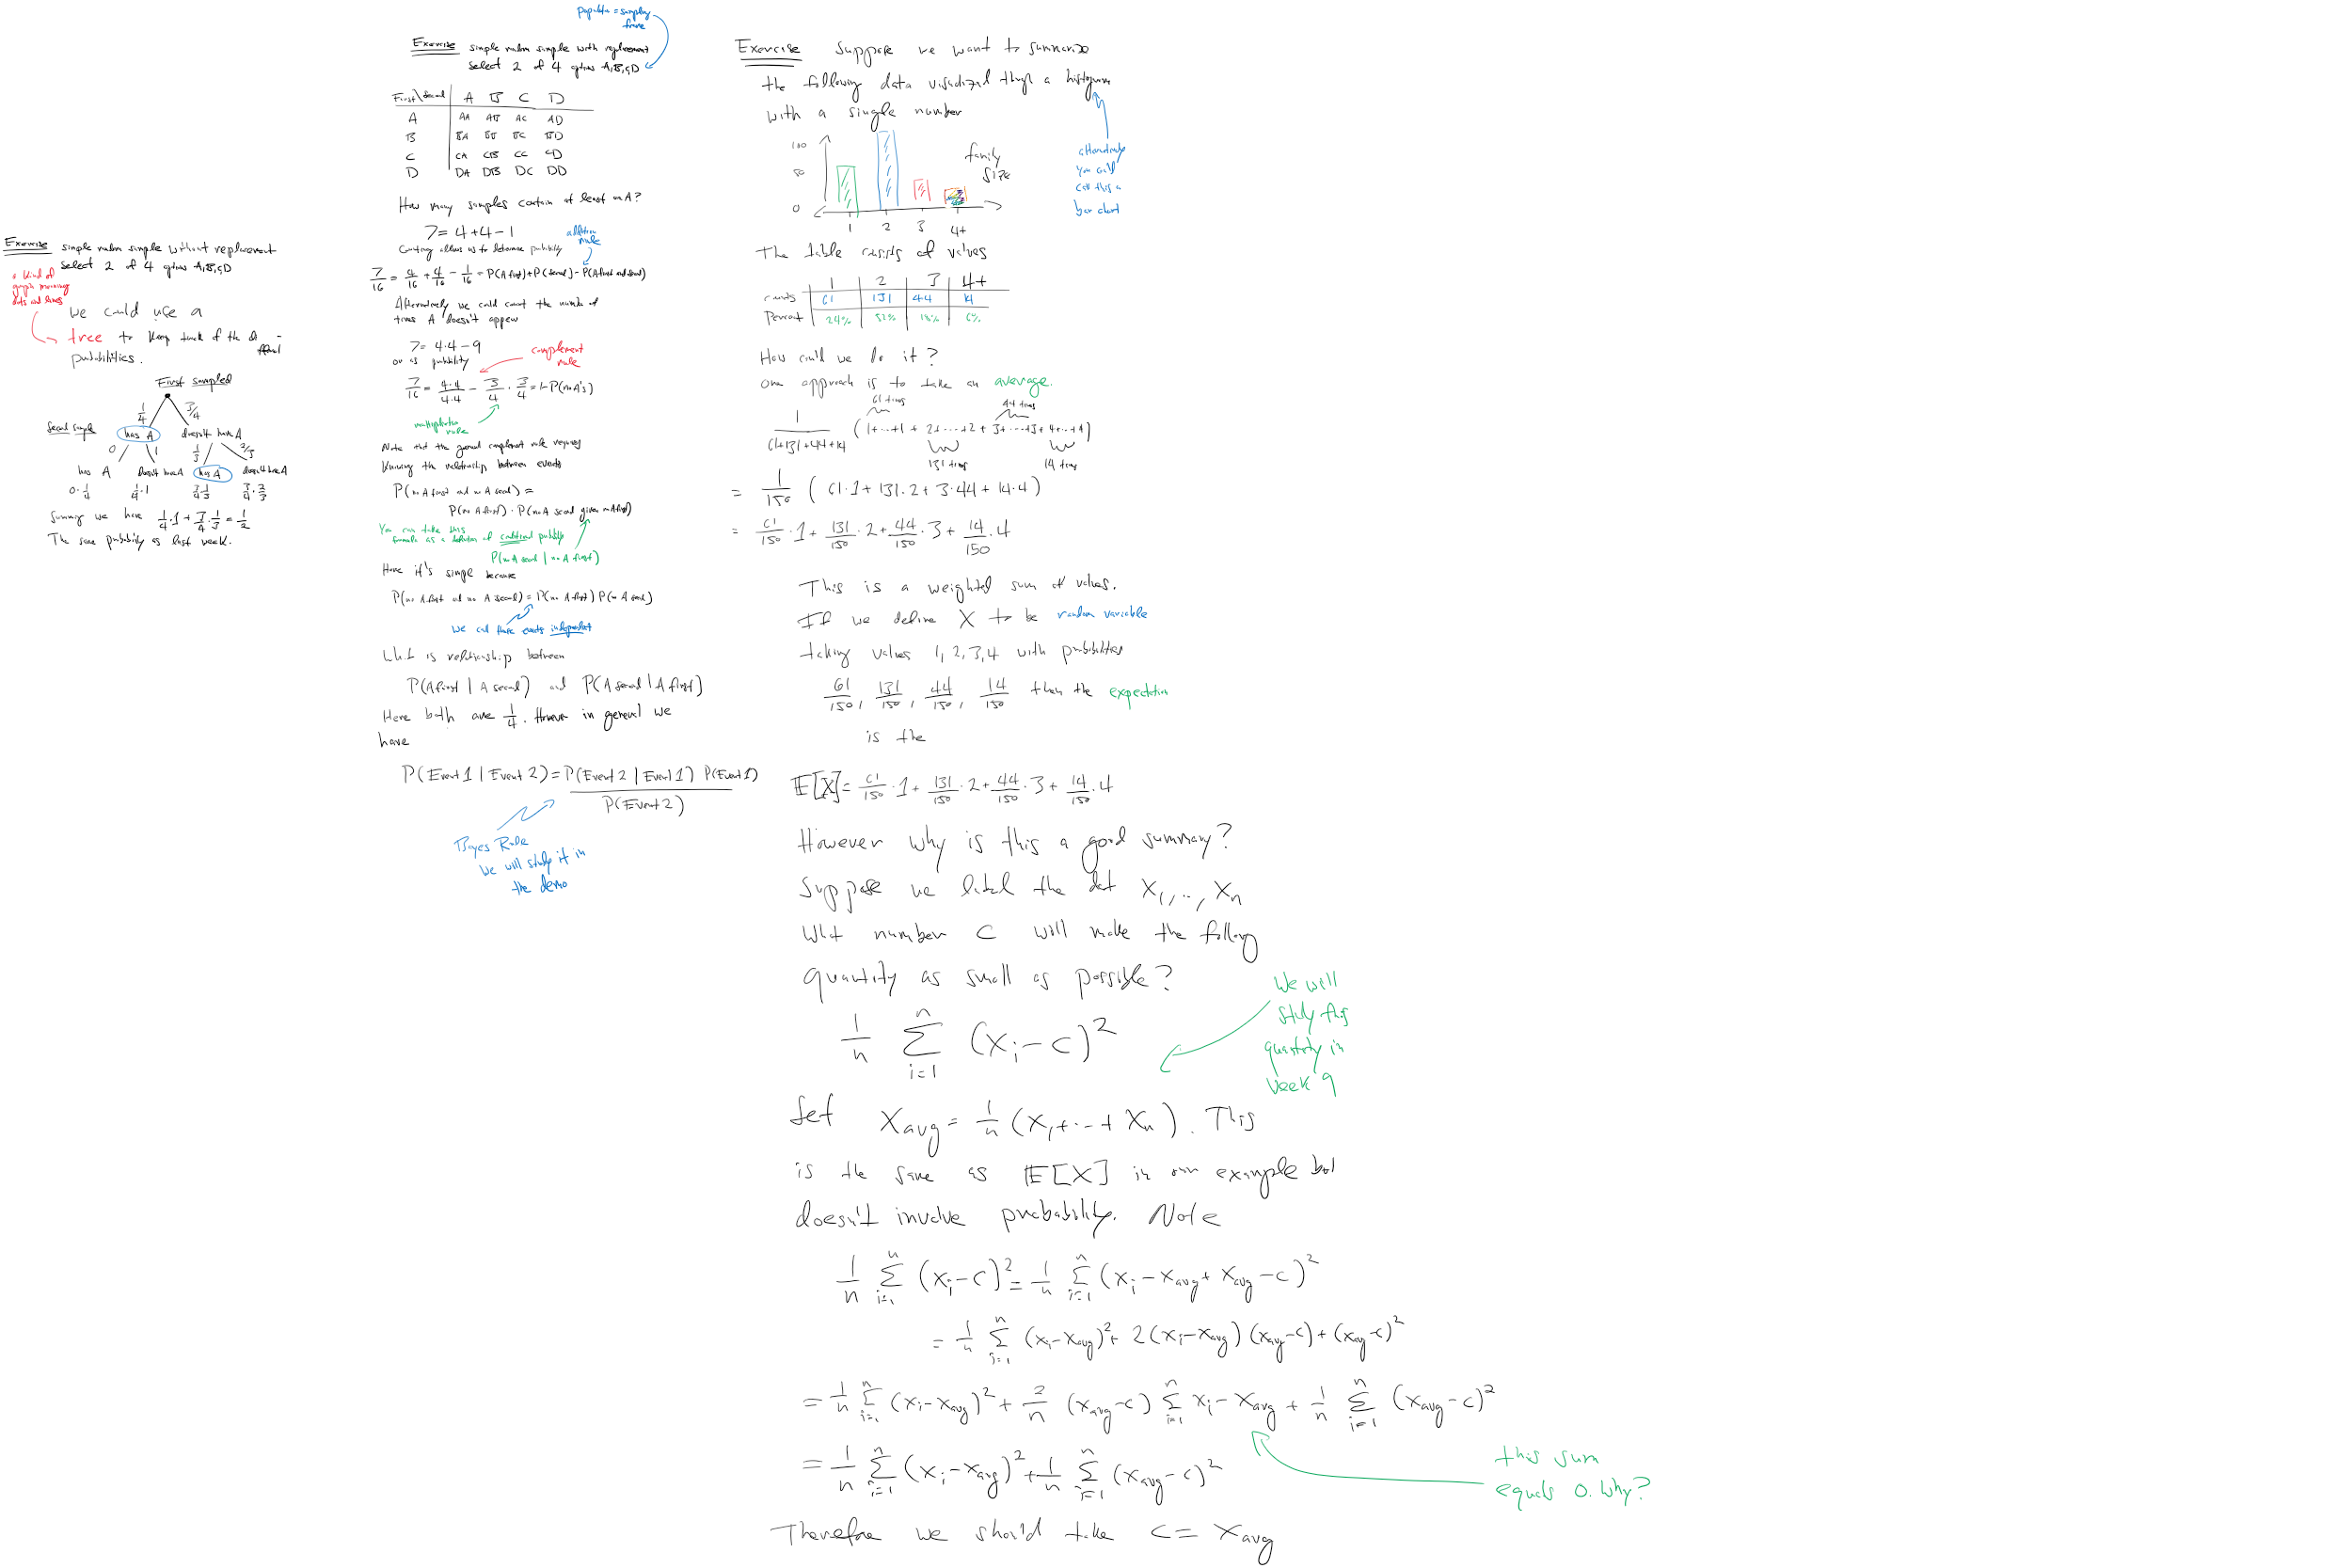 Exercise simple random sample without replacement
select 2 of 4 A,B,C,D
a kind of
graph meaning
dots and lines
we could use a
tree to keep track of the
probabilities.
First sampled
1/4 3/4
Second sample
has A doesn't have A
0 1 1/3 2/3
has A doesn't have A has A doesn't have A
0·1/4 1/4·1 3/4·1/3 3/4·2/3
Summing we have 1/4·1+3/4·1/3=1/2
The same probability as last week.
population = sampling
frame
Exercise simple random sample with replacement
select 2 of 4 A,B,C,D
First\Second A B C D
A AA AB AC AD
B BA BB BC BD
C CA CB CC CD
D DA DB DC DD
How many samples contain at least one A?
7=4+4-1
Counting allows us to determine probability
addition
rule
7/16=4/16+4/16-1/16=P(A first)+P(A second)-P(A first and second)
Alternatively we could count the number of
times A doesn't appear
7=4·4-9
or as probability
complement
rule
7/16=4·4/4·4-3/4·3/4=1-P(no A's)
multiplication
rule
Note that the general complement rule requires
knowing the relationship between events
P(no A first and no A second)=
P(no A first)·P(no A second given no A first)
You can take this
formula as a definition of conditional probability
P(no A second | no A first)
Here it's simple because
P(no A first and no A second)=P(no A first)P(no A second)
We call these events independent
What is relationship between
P(A first | A second) and P(A second | A first)
Here both are 1/4. However in general we
have
P(Event 1 | Event 2)=P(Event 2 | Event 1) P(Event 1)
P(Event 2)
Bayes Rule
We will study it in
the demo
Exercise Suppose we want to summarize
the following data visualized through a histogram
with a single number
100
50
0
1 2 3 4+
family
size
alternatively
you could
call this a
bar chart
The table consists of values
1 2 3 4+
counts 61 131 44 14
Percent 24% 52% 18% 6%
How could we do it?
One approach is to take an average.
61 times 44 times
1/(61+131+44+14) (1+...+1 + 2+...+2 + 3+...+3 + 4+...+4)
131 times 14 times
= 1/150 (61·1+131·2+3·44+14·4)
= 61/150·1+131/150·2+44/150·3+14/150·4
This is a weighted sum of values.
If we define X to be random variable
taking values 1,2,3,4 with probabilities
61/150, 131/150, 44/150, 14/150 then the expectation
is the
E[X]=61/150·1+131/150·2+44/150·3+14/150·4
However why is this a good summary?
Suppose we label the dat X1,..,Xn
What number C will make the following
quantity as small as possible?
1/n Σ_{i=1}^{n} (xi-c)²
We will
study this
quantity in
Week 9
Set Xavg=1/n(X1+...+Xn). This
is the same as E[X] in our example but
doesn't involve probability. Note
1/n Σ_{i=1}^{n} (xi-c)²=1/n Σ_{i=1}^{n} (xi-xavg+xavg-c)²
=1/n Σ_{i=1}^{n} (xi-xavg)²+2(xi-xavg)(xavg-c)+(xavg-c)²
=1/n Σ_{i=1}^{n} (xi-xavg)²+2/n (xavg-c) Σ_{i=1}^{n} xi-xavg+1/n Σ_{i=1}^{n} (xavg-c)²
=1/n Σ_{i=1}^{n} (xi-xavg)²+1/n Σ_{i=1}^{n} (xavg-c)²
this sum
equals 0. Why?
Therefore we should take c=xavg